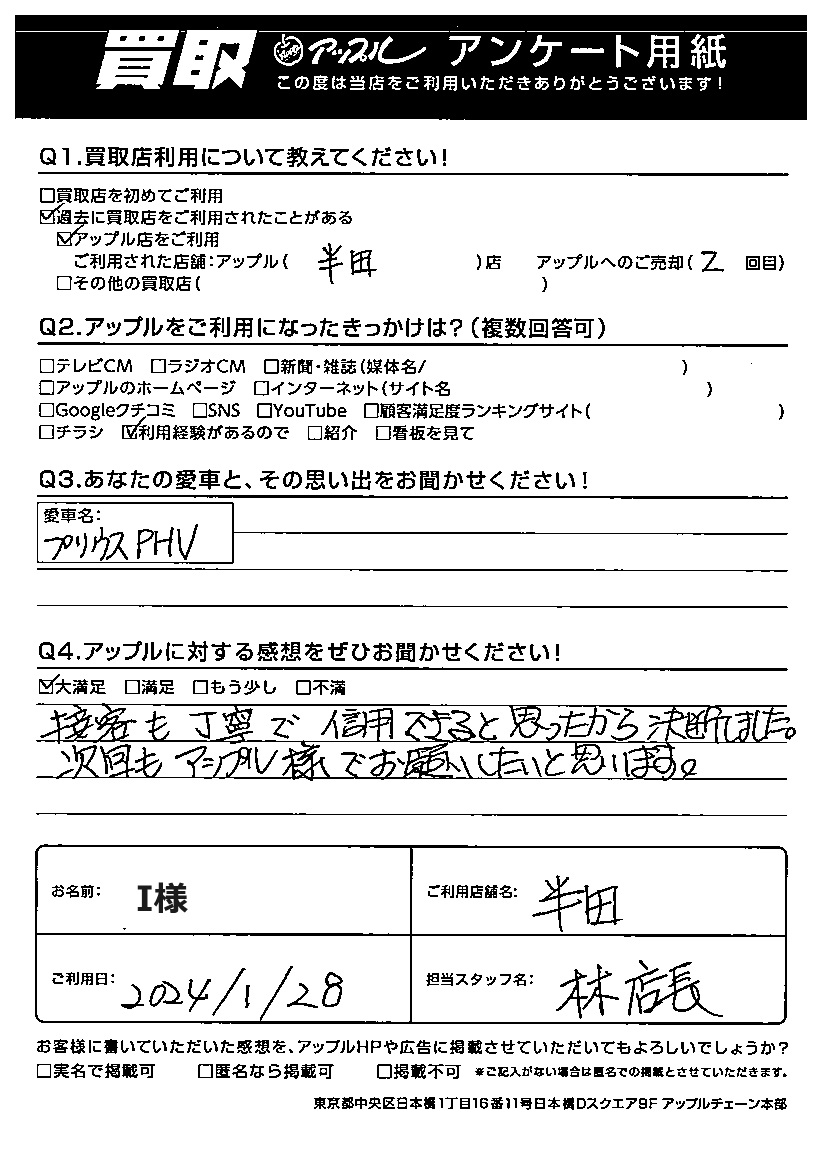 買取 アップル アンケート用紙
この度は当店をご利用いただきありがとうございます!
Q1.買取店利用について教えてください!
□買取店を初めてご利用
☑過去に買取店をご利用されたことがある
☑アップル店をご利用
ご利用された店舗:アップル( 半田 )店 アップルへのご売却( 2 回目)
□その他の買取店( )
Q2.アップルをご利用になったきっかけは?(複数回答可)
□テレビCM □ラジオCM □新聞・雑誌(媒体名/ )
□アップルのホームページ □インターネット(サイト名 )
□Googleクチコミ □SNS □YouTube □顧客満足度ランキングサイト( )
□チラシ ☑利用経験があるので □紹介 □看板を見て
Q3.あなたの愛車と、その思い出をお聞かせください!
愛車名:
プリウスPHV
Q4.アップルに対する感想をぜひお聞かせください!
☑大満足 □満足 □もう少し □不満
接客も丁寧で信用できると思ったから決断しました。
次回もアップル様でお願いしたいと思います。
お名前: I様 ご利用店舗名: 半田
ご利用日: 2024/1/28 担当スタッフ名: 林店長
お客様に書いていただいた感想を、アップルHPや広告に掲載させていただいてもよろしいでしょうか?
□実名で掲載可 □匿名なら掲載可 □掲載不可 *ご記入がない場合は匿名での掲載とさせていただきます。
東京都中央区日本橋1丁目16番11号日本橋Dスクエア9F アップルチェーン本部